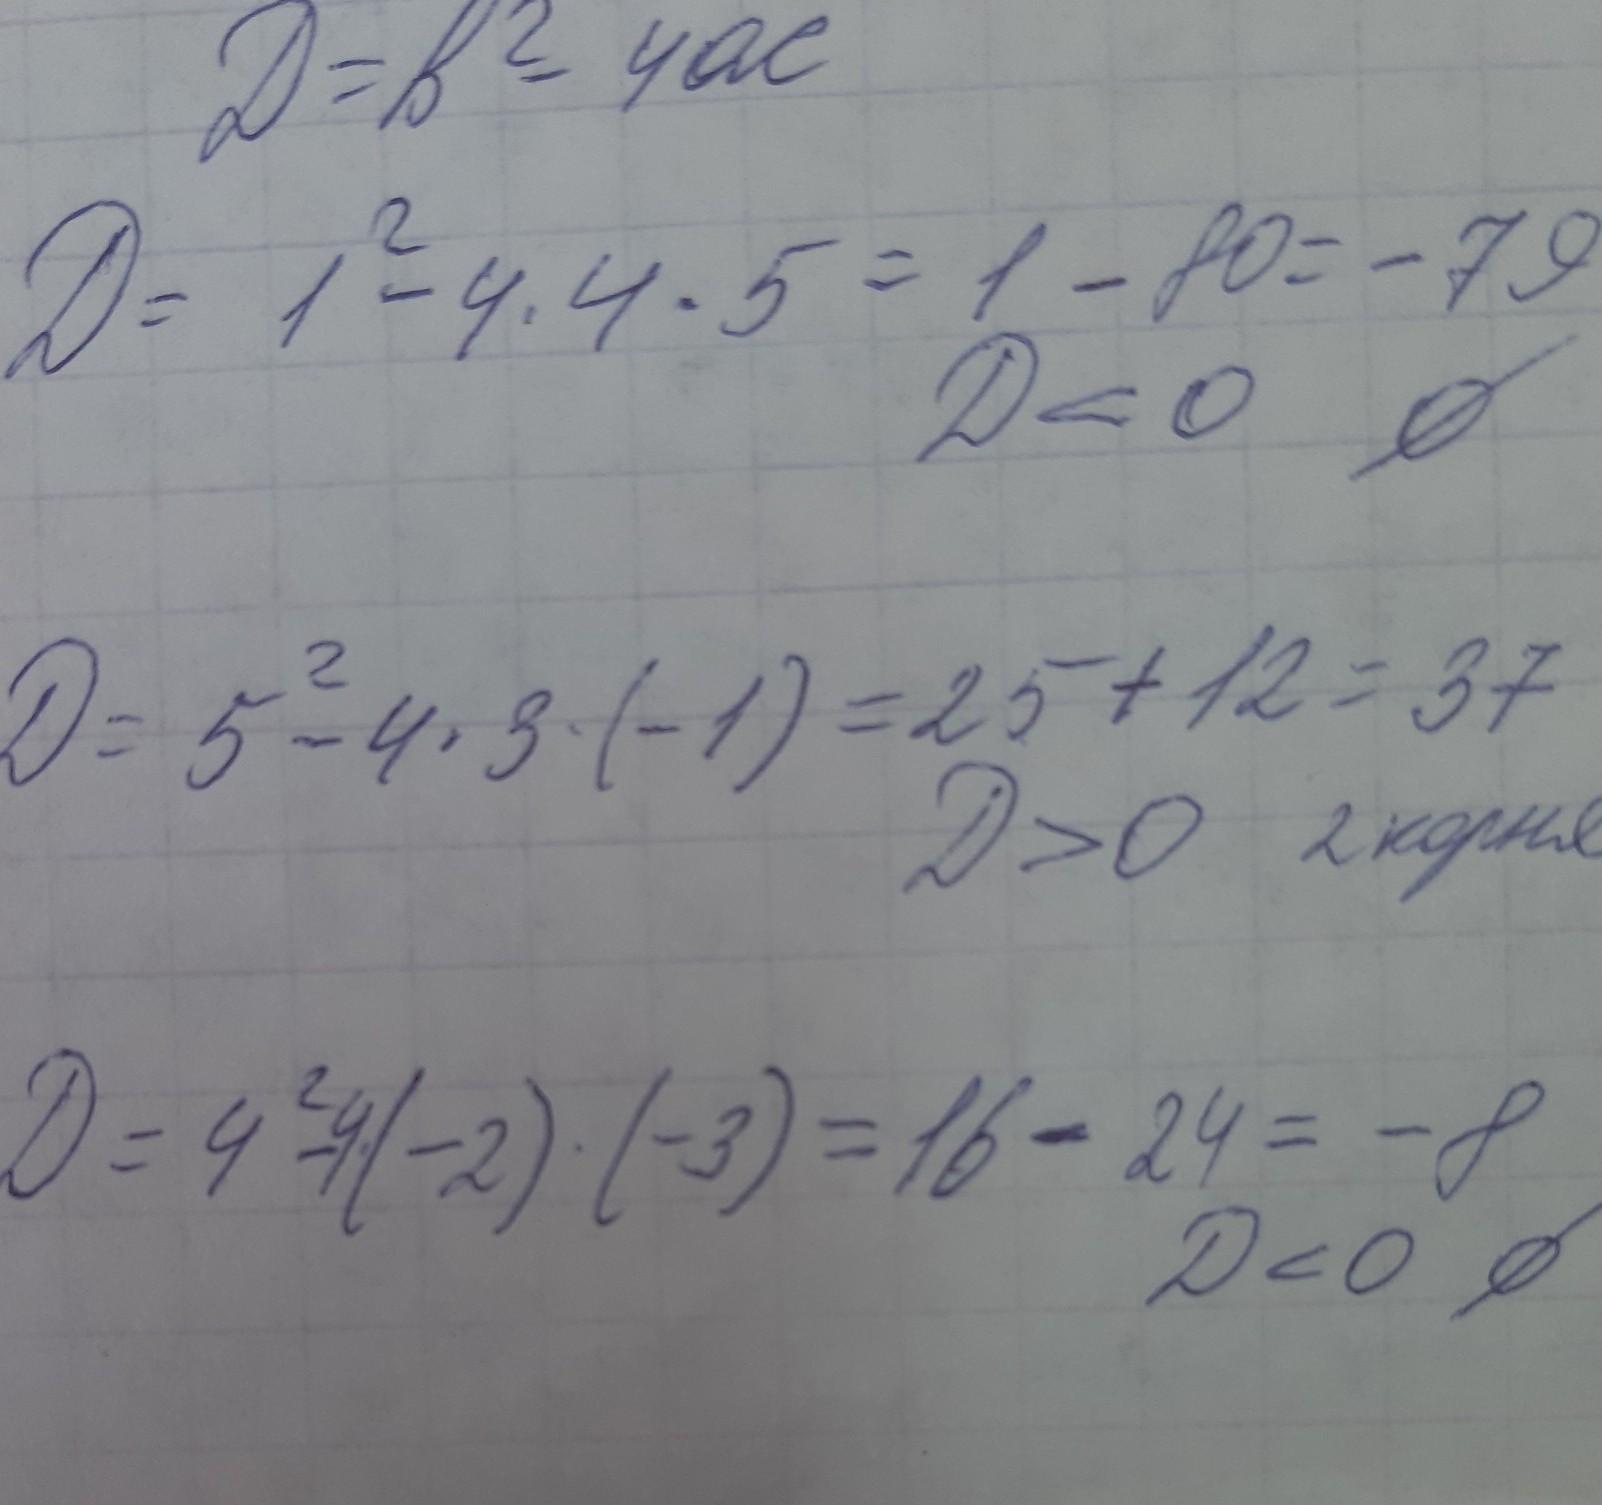 D = b² - 4ac
D = 1² - 4 · 4 · 5 = 1 - 80 = - 79
D < 0 ∅
D = 5² - 4 · 3 · (-1) = 25 + 12 = 37
D > 0 2 корня
D = 4² - 4 · (-2) · (-3) = 16 - 24 = - 8
D < 0 ∅